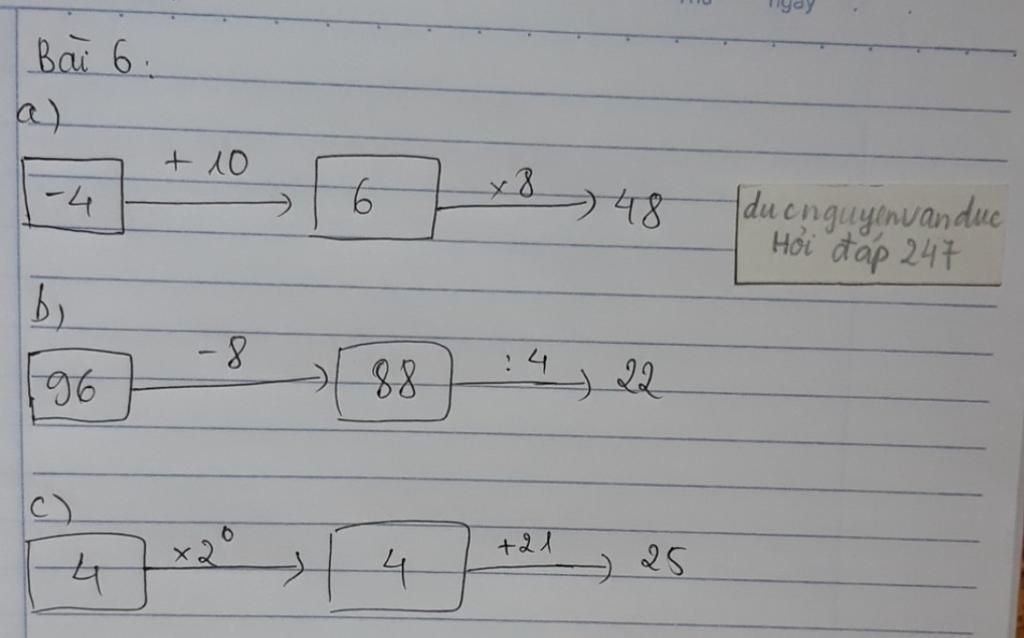 ngày
Bài 6:
a)
-4 + 10 6 × 8 48
ducnguyenvanduc
Hỏi đáp 247
b)
96 - 8 88 : 4 22
c)
4 × 2⁰ 4 +21 25